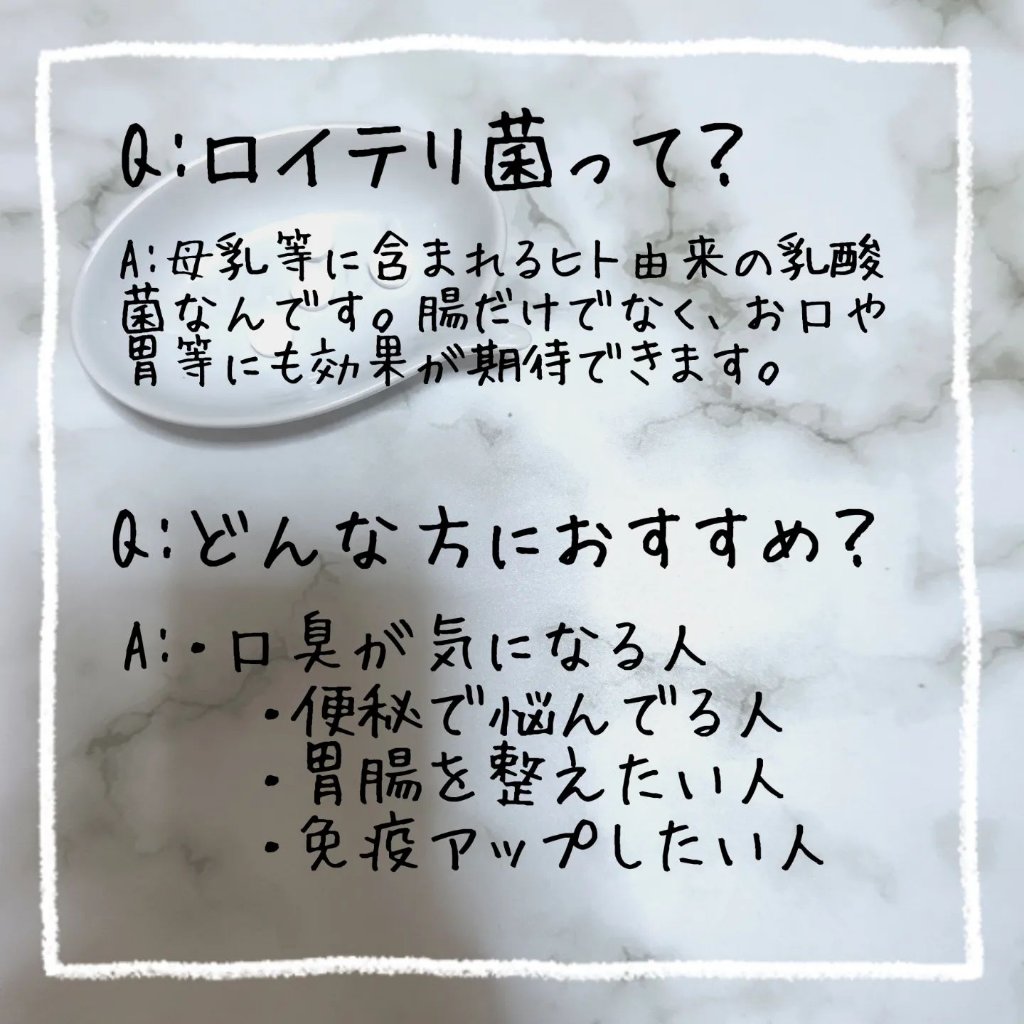 Q:ロイテリ菌って?
A:母乳等に含まれるヒト由来の乳酸
菌なんです。腸だけでなく、お口や
胃等にも効果が期待できます。
Q:どんな方におすすめ?
A:・口臭が気になる人
・便秘で悩んでる人
・胃腸を整えたい人
・免疫アップしたい人